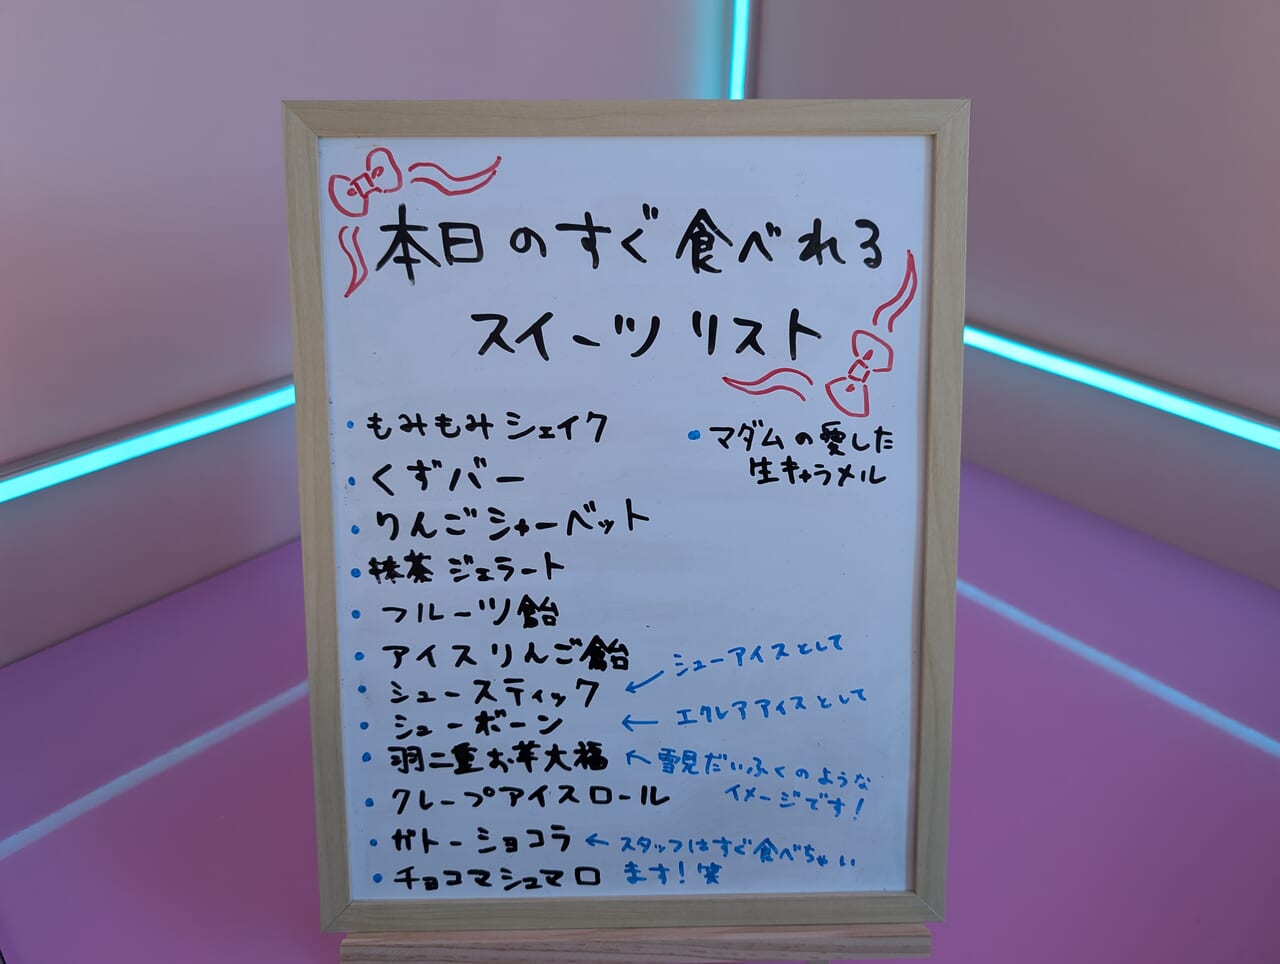 本日のすぐ食べれる
スイーツリスト
・もみもみシェイク
・くずバー
・りんごシャーベット
・抹茶ジェラート
・フルーツ飴
・アイスりんご飴
・シュースティック ← シューアイスとして
・シューボーン ← エクレアアイスとして
・羽二重お芋大福 ← 雪見だいふくのような
イメージです!
・クレープアイスロール
・ガトーショコラ ← スタッフはすぐ食べちゃい
ます!笑
・チョコマシュマロ
・マダムの愛した
生キャラメル